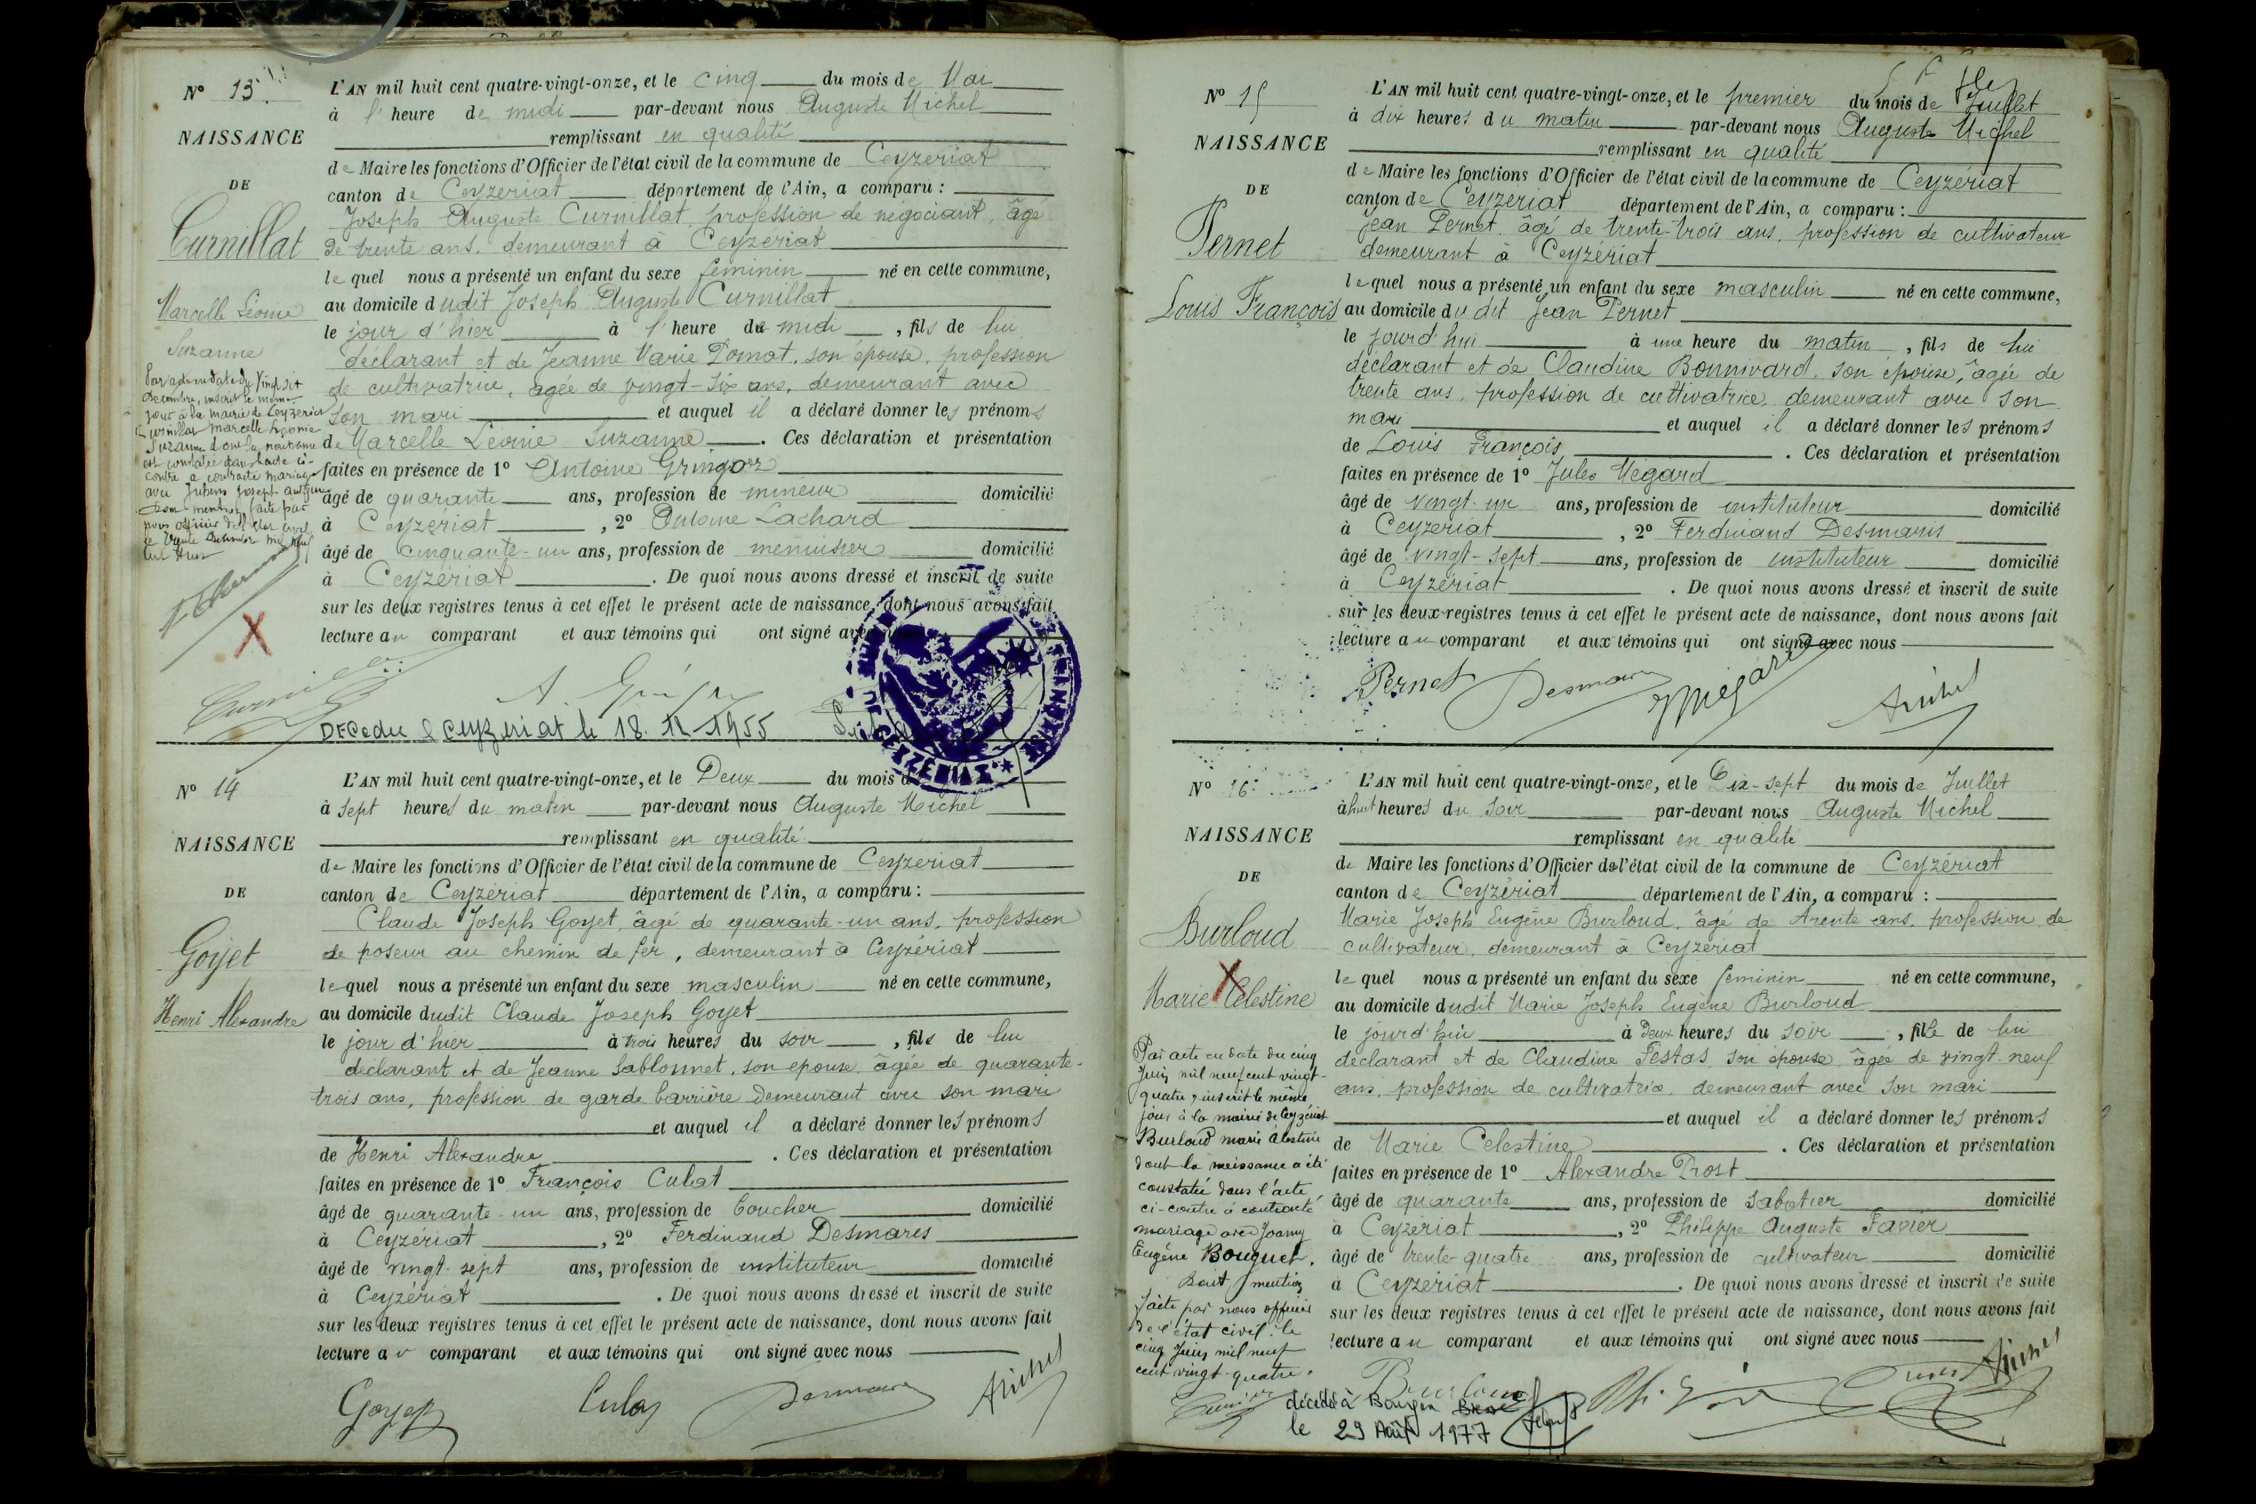 N° 13.
NAISSANCE
DE
Curnillat
Marcelle Léonie
Suzanne
Par acte en date du Vingt sept
décembre, inscrit le même
jour à la mairie de Ceyzériat
Curnillat Marcelle Léonie
Suzanne dont la naissance
est constatée dans l'acte ci-
contre a contracté mariage
avec Joseph
Dont mention faite par
nous officier de l'état civil
le trente décembre mil neuf
cent
L'AN mil huit cent quatre-vingt-onze, et le cinq du mois de Mai
à l'heure de midi par-devant nous Auguste Michel
remplissant en qualité
de Maire les fonctions d'Officier de l'état civil de la commune de Ceyzériat
canton de Ceyzériat département de l'Ain, a comparu :
Joseph Auguste Curnillat, profession de négociant, âgé
de trente ans, demeurant à Ceyzériat
lequel nous a présenté un enfant du sexe féminin né en cette commune,
au domicile dudit Joseph Auguste Curnillat
le jour d'hier à l'heure de midi, fils de lui
déclarant et de Jeanne Marie Pomat, son épouse, profession
de cultivatrice, agée de vingt-six ans, demeurant avec
son mari et auquel il a déclaré donner les prénoms
de Marcelle Léonie Suzanne. Ces déclaration et présentation
faites en présence de 1° Antoine Gringoz
âgé de quarante ans, profession de mineur domicilié
à Ceyzériat, 2° Antoine Lachard
âgé de cinquante-un ans, profession de menuisier domicilié
à Ceyzériat. De quoi nous avons dressé et inscrit de suite
sur les deux registres tenus à cet effet le présent acte de naissance, dont nous avons fait
lecture au comparant et aux témoins qui ont signé avec
DECédée à Ceyzériat le 18. 12-1955
N° 14
NAISSANCE
DE
Goyet
Henri Alexandre
L'AN mil huit cent quatre-vingt-onze, et le Deux du mois d
à sept heures du matin par-devant nous Auguste Michel
remplissant en qualité
de Maire les fonctions d'Officier de l'état civil de la commune de Ceyzériat
canton de Ceyzériat département de l'Ain, a comparu :
Claude Joseph Goyet, âgé de quarante-un ans, profession
de poseur au chemin de fer, demeurant à Ceyzériat
lequel nous a présenté un enfant du sexe masculin né en cette commune,
au domicile dudit Claude Joseph Goyet
le jour d'hier à trois heures du soir, fils de lui
déclarant et de Jeanne Sablonnet, son epouse, âgée de quarante-
trois ans, profession de garde barrière demeurant avec son mari
et auquel il a déclaré donner les prénoms
de Henri Alexandre. Ces déclaration et présentation
faites en présence de 1° François Culat
âgé de quarante-un ans, profession de boucher domicilié
à Ceyzériat, 2° Ferdinand Desmaris
âgé de vingt-sept ans, profession de instituteur domicilié
à Ceyzériat. De quoi nous avons dressé et inscrit de suite
sur les deux registres tenus à cet effet le présent acte de naissance, dont nous avons fait
lecture au comparant et aux témoins qui ont signé avec nous
Goyet Culat Desmaris Michel
N° 15
NAISSANCE
DE
Pernet
Louis François
L'AN mil huit cent quatre-vingt-onze, et le premier du mois de Juillet
à dix heures du matin par-devant nous Auguste Michel
remplissant en qualité
de Maire les fonctions d'Officier de l'état civil de la commune de Ceyzériat
canton de Ceyzériat département de l'Ain, a comparu :
Jean Pernet, âgé de trente-trois ans, profession de cultivateur
demeurant à Ceyzériat
lequel nous a présenté un enfant du sexe masculin né en cette commune,
au domicile du dit Jean Pernet
le jourd'hui à une heure du matin, fils de lui
déclarant et de Claudine Bonnivard, son épouse, âgée de
trente ans, profession de cultivatrice, demeurant avec son
mari et auquel il a déclaré donner les prénoms
de Louis François. Ces déclaration et présentation
faites en présence de 1° Jules Mégard
âgé de vingt-un ans, profession de instituteur domicilié
à Ceyzériat, 2° Ferdinand Desmaris
âgé de vingt-sept ans, profession de instituteur domicilié
à Ceyzériat. De quoi nous avons dressé et inscrit de suite
sur les deux registres tenus à cet effet le présent acte de naissance, dont nous avons fait
lecture au comparant et aux témoins qui ont signé avec nous
Pernet Desmaris J Mégard Michel
N° 16
NAISSANCE
DE
Burloud
Marie Célestine
Par acte en date du cinq
Juin mil neuf cent vingt-
quatre, inscrit le même
jour à la mairie de Ceyzériat
Burloud Marie Célestine
dont la naissance a été
constatée dans l'acte
ci-contre a contracté
mariage avec Joanny
Eugène Bouquet.
Dont mention
faite par nous officier
de l'état civil. le
cinq Juin mil neuf
cent vingt-quatre.
L'AN mil huit cent quatre-vingt-onze, et le Dix-sept du mois de Juillet
à huit heures du soir par-devant nous Auguste Michel
remplissant en qualité
de Maire les fonctions d'Officier de l'état civil de la commune de Ceyzériat
canton de Ceyzériat département de l'Ain, a comparu :
Marie Joseph Eugène Burloud, âgé de trente ans, profession de
cultivateur, demeurant à Ceyzériat
lequel nous a présenté un enfant du sexe féminin né en cette commune,
au domicile dudit Marie Joseph Eugène Burloud
le jourd'hui à Deux heures du soir, fille de lui
déclarant et de Claudine Festas, son épouse, âgée de vingt-neuf
ans, profession de cultivatrice, demeurant avec son mari
et auquel il a déclaré donner les prénoms
de Marie Célestine. Ces déclaration et présentation
faites en présence de 1° Alexandre Prost
âgé de quarante ans, profession de sabotier domicilié
à Ceyzériat, 2° Philippe Auguste Favier
âgé de trente-quatre ans, profession de cultivateur domicilié
à Ceyzériat. De quoi nous avons dressé et inscrit de suite
sur les deux registres tenus à cet effet le présent acte de naissance, dont nous avons fait
lecture au comparant et aux témoins qui ont signé avec nous
Burloud Michel
décédée à Bourg en Bresse
le 29 Août 1977